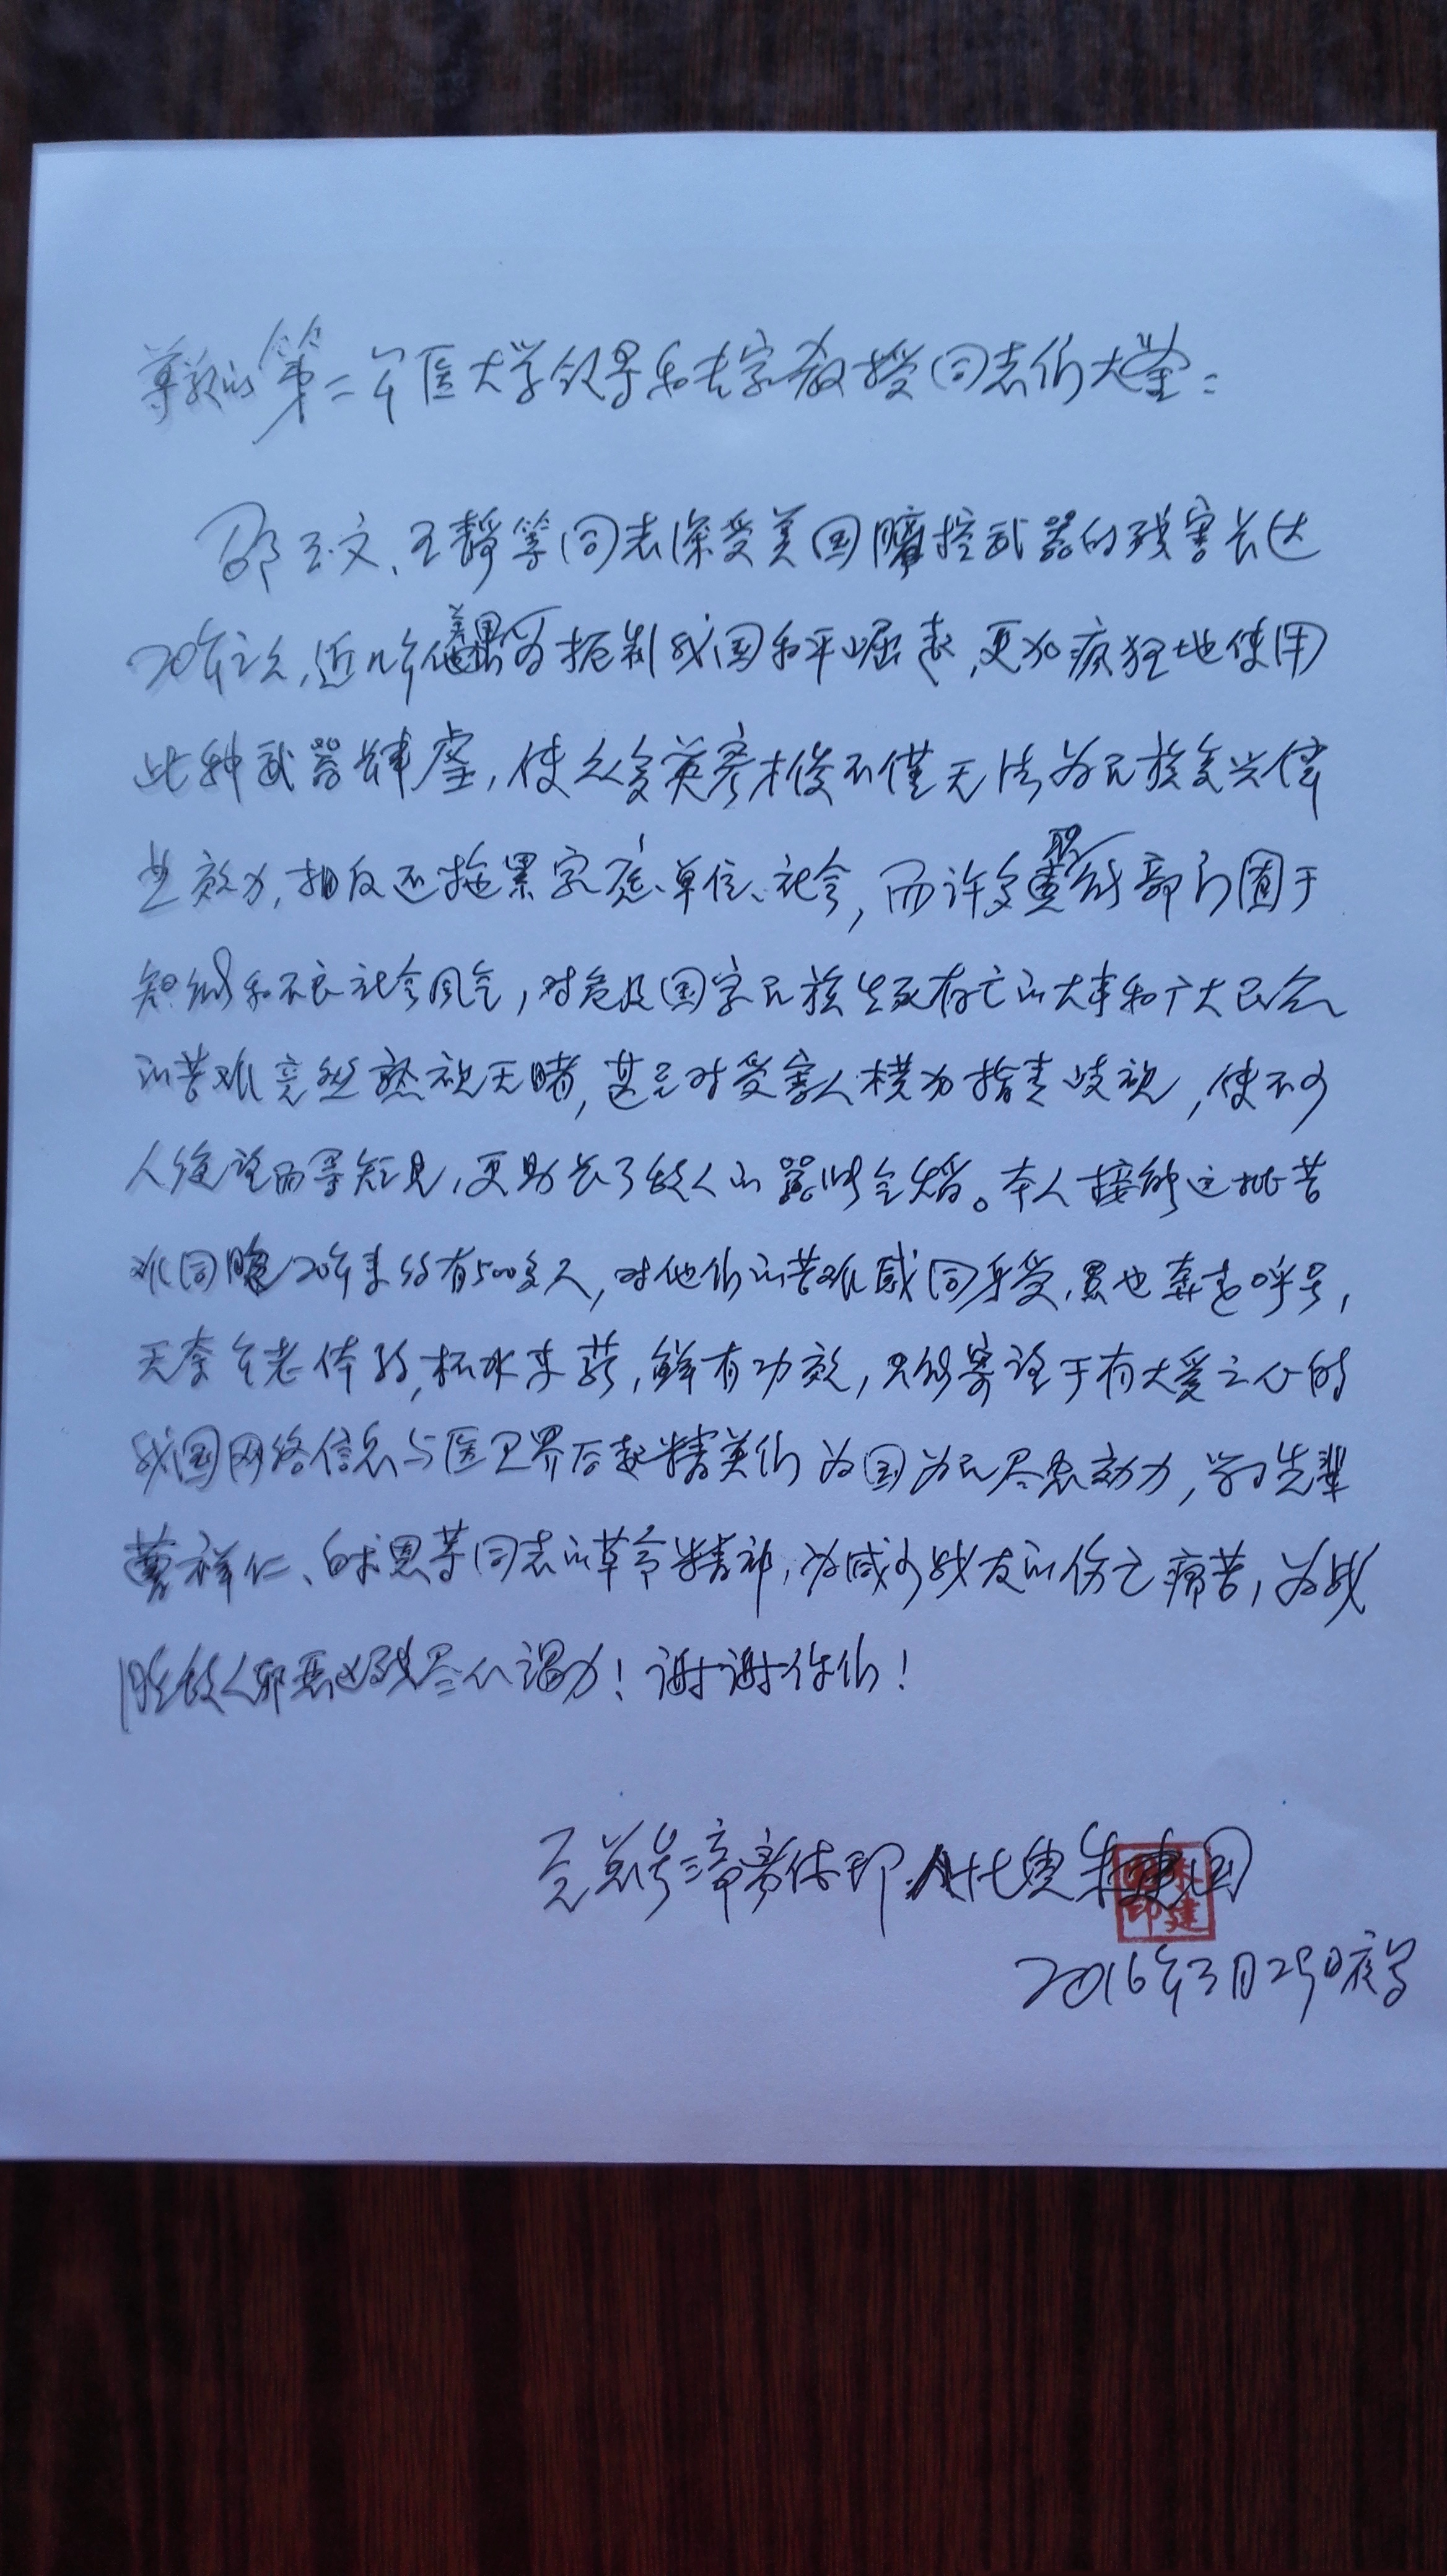 尊敬的第二军医大学领导和专家教授同志们大鉴:
邵玉文、王静等同志深受美国脑控武器的残害长达
20年之久,近几年美国为扼制我国和平崛起,更加疯狂地使用
此种武器肆虐,使众多英才俊不仅无法为民族复兴伟
业效力,相反还拖累家庭、单位、社会,而许多职能部门囿于
知识和不良社会风气,对危及国家民族生死存亡的大事和广大民众
的苦难竟然熟视无睹,甚至对受害人横加指责歧视,使不少
人绝望而寻短见,更助长了敌人的嚣张气焰。本人接触这批苦
难同胞20年来约有500多人,对他们的苦难感同身受,累也奔走呼号,
无奈年老体弱,杯水车薪,鲜有功效,只能寄望于有大爱之心的
我国网络信息与医卫界后起精英们为国为民尽忠效力,学习先辈
曹祥仁、白求恩等同志的革命精神,为减少战友的伤亡痛苦,为战
胜敌人邪恶凶残尽心竭力!谢谢你们!
朱建国
2016年3月25日夜写